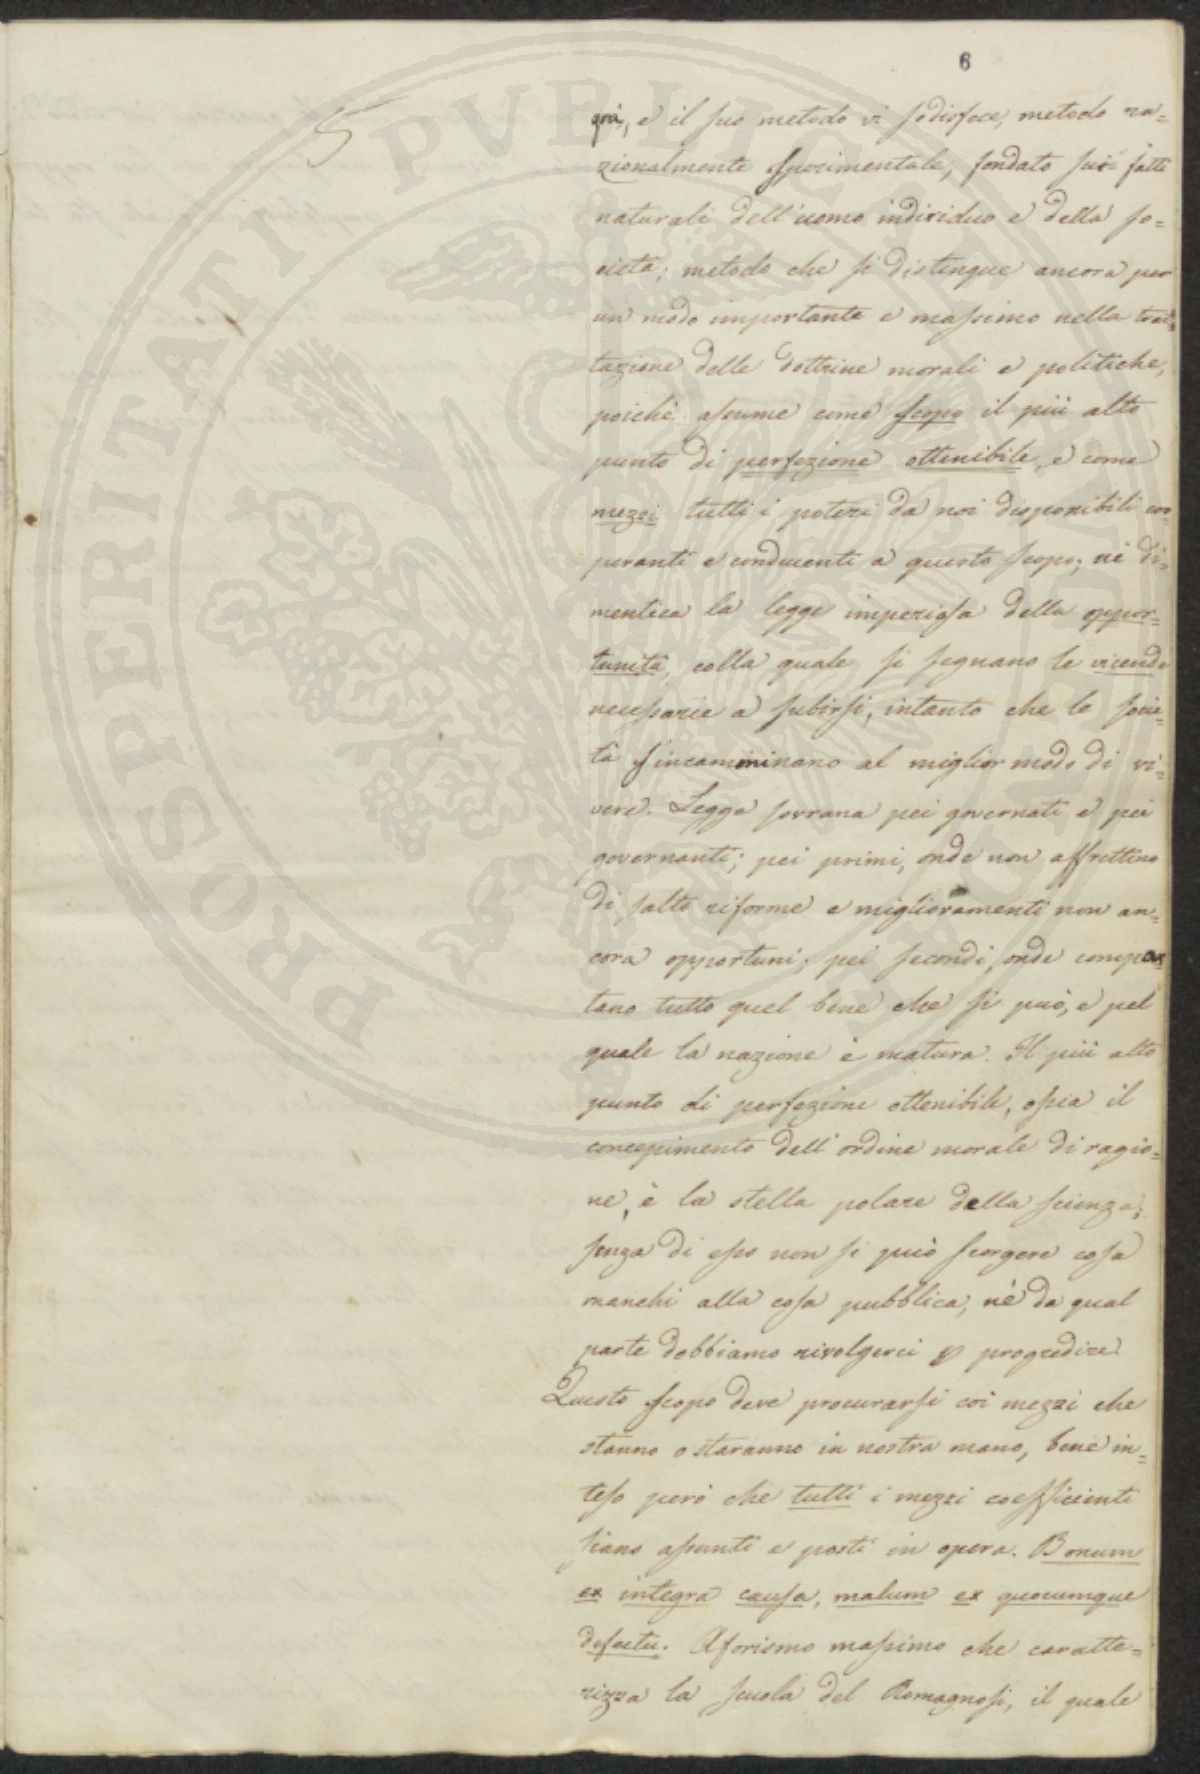 6
5
PROSPERITATI PVBLICAE
grà, e il suo metodo vi sodisfece, metodo ra=
zionalmente sperimentale, fondato sui fatti
naturali dell'uomo individuo e della so=
cietà; metodo che si distingue ancora per
un modo importante e massimo nella trat=
tazione delle dottrine morali e politiche,
poichè assume come scopo il più alto
punto di perfezione ottenibile, e come
mezzi tutti i poteri da noi disponibili coo=
peranti e conducenti a questo scopo; nè di=
mentica la legge imperiosa della oppor=
tunità, colla quale si segnano le vicende
necessarie a subirsi, intanto che le socie=
tà s'incamminano al miglior modo di vi=
vere. Legge sovrana pei governati e pei
governanti; pei primi, onde non affrettino
di salto riforme e miglioramenti non an=
cora opportuni; pei secondi, onde compar
tano tutto quel bene che si può, e pel
quale la nazione è matura. Il più alto
punto di perfezione ottenibile, ossia il
concepimento dell'ordine morale di ragio=
ne, è la stella polare della scienza;
senza di esso non si può scorgere cosa
manchi alla cosa pubblica, nè da qual
parte dobbiamo rivolgerci p progredire.
Questo scopo deve procurarsi coi mezzi che
stanno o staranno in nostra mano, bene in=
teso però che tutti i mezzi coefficienti
siano assunti e posti in opera. Bonum
ex integra causa, malum ex quocumque
defectu. Aforismo massimo che caratte=
rizza la scuola del Romagnosi, il quale